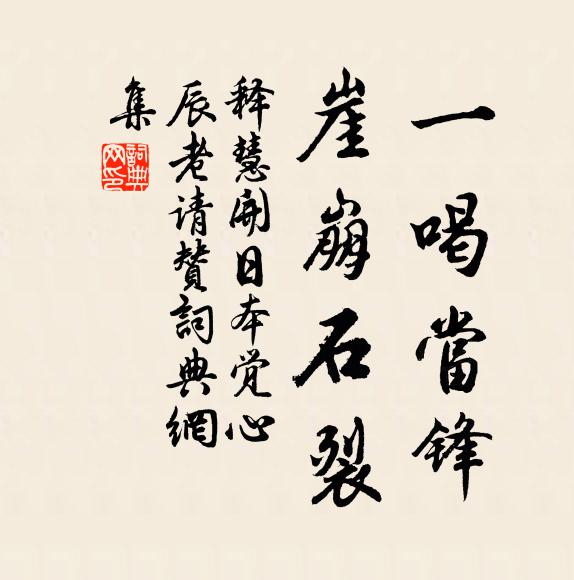 一喝當鋒
崖崩石裂
释慧開日本觉心
辰老请贊詞典網
集
詞典
网印